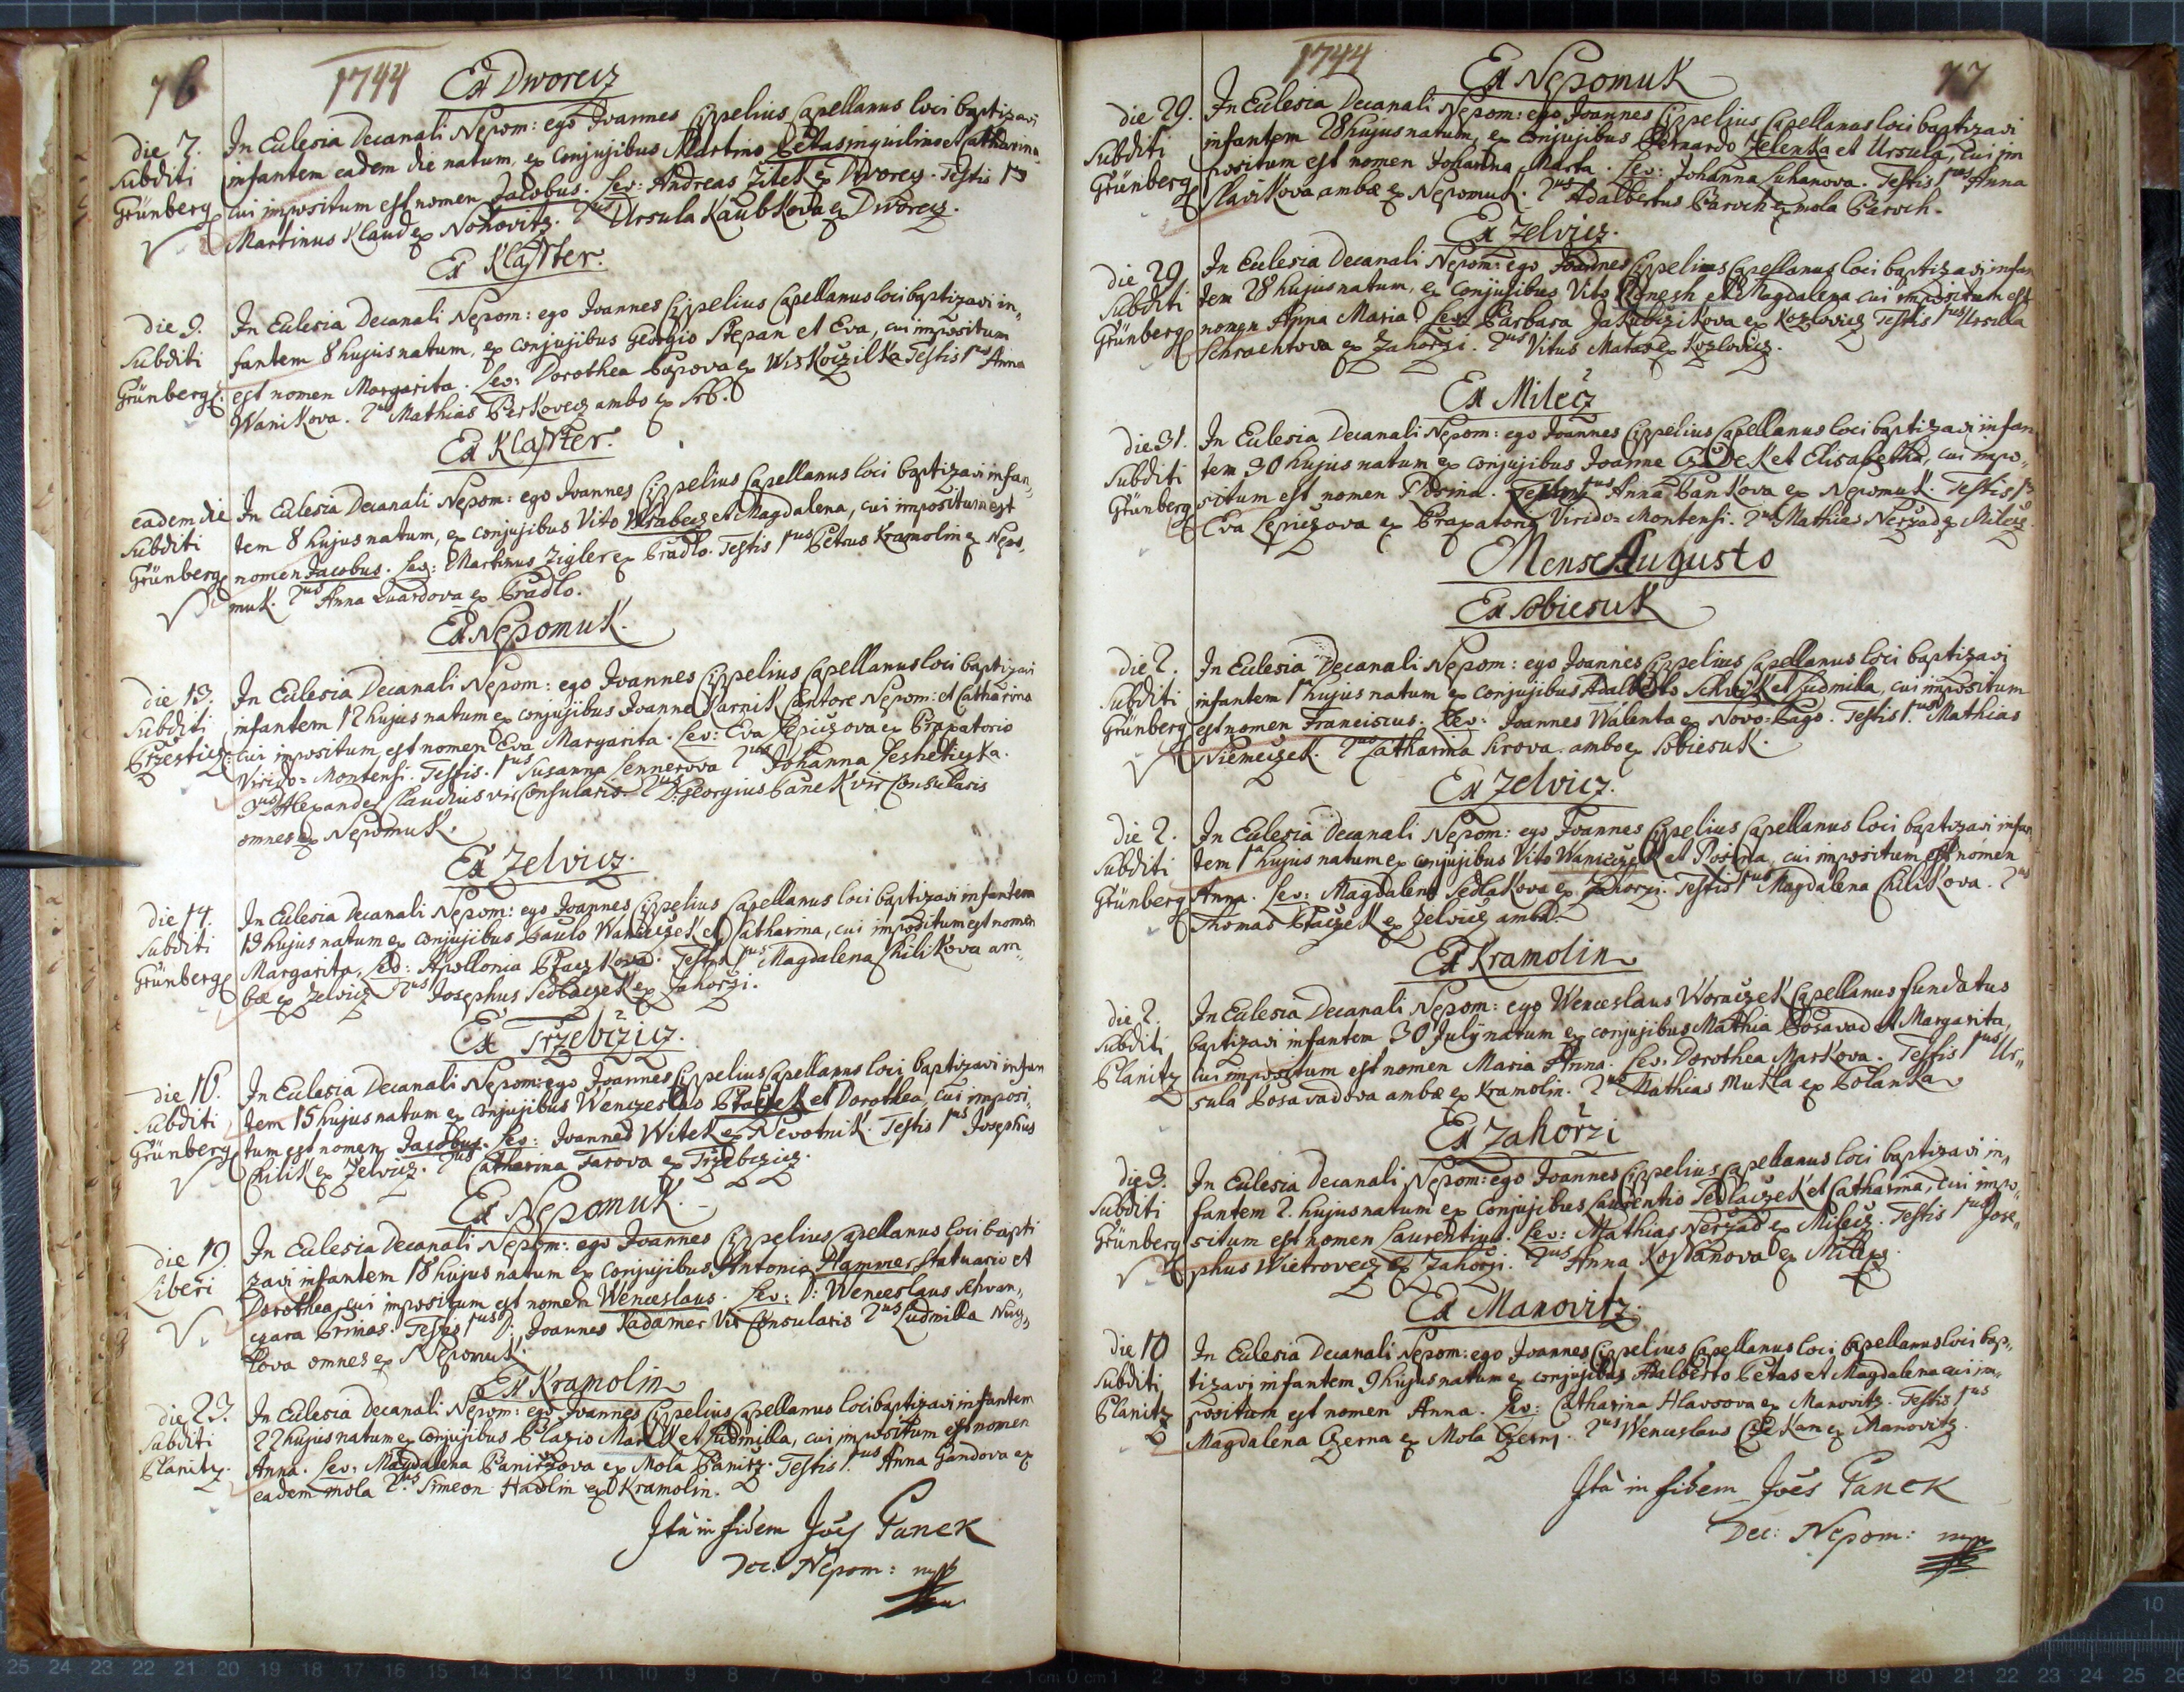 76
1744
Ex Dworecz
die 7.
Subditi
Grünberg
In Eclesia Decanali Nepom: ego Joannes Cippelius Capellanus loci baptizavi
infantem eadem die natum, ex conjujibus Martino Petas inquilino et Catharina
cui impositum est nomen Jacobus. Lev: Andreas Zitek ex Dworecz. Testis 1us
Martinus Klaud ex Nohovitz. 2us Ursula Kaubkova ex Dworecz.
Ex Klaster.
die 9.
Subditi
Grünberg.
In Eclesia Decanali Nepom: ego Joannes Cippelius Capellanus loci baptizavi in„
fantem 8 hujus natum, ex conjujibus Georgio Stepan et Eva, cui impositum
est nomen Margarita. Lev: Dorothea Papova ex Wiskoczilka Testis 1us Anna
Wanikova. 2us Mathias Berkovecz ambo ex Srb.
Ex Klaster.
eadem die
Subditi
Grünberg
In Eclesia Decanali Nepom: ego Joannes Cippelius Capellanus loci baptizavi infan„
tem 8 hujus natum, ex conjujibus Vito Wrabecz et Magdalena, cui impositum est
nomen Jacobus. Lev: Martinus Zigler ex Pradlo. Testis 1us Petrus Kramolin ex Nepo„
muk. 2us Anna Quardova ex Pradlo.
Ex Nepomuk.
die 13.
Subditi
Przesticz:
In Eclesia Decanali Nepom: ego Joannes Cippelius Capellanus loci baptizavi
infantem 12 hujus natum ex conjujibus Joanne Parnik Cantore Nepom: et Catharina
cui impositum est nomen Eva Margarita. Lev: Eva Lepiczova ex Praxatorio
Virido= Montensi. Testis. 1us Susanna Lennerova 2us Johanna Leshetizka.
3us Alexander Claudius vir Consularis. 2us D: Georgius Panek vir Consularis
omnes ex Nepomuk.
Ex Zelvicz.
die 14.
Subditi
Grünberg
In Eclesia Decanali Nepom: ego Joannes Cippelius Capellanus loci baptizavi infantem
13 hujus natum ex conjujibus Paulo Waniczek et Catharina, cui impositum est nomen
Margarita, Lev: Apollonia Ptaczkova. Testis 1us Magdalena Chilikova am„
bæ ex Zelvicz 2us Josephus Sedlaczek ex Zahorzi.
Ex Trzebczicz.
die 16.
Subditi
Grünberg
In Eclesia Decanali Nepom: ego Joannes Cippelius Capellanus loci baptizavi infan
tem 15 hujus natum ex conjujibus Wenczeslao Ptaczek et Dorothea, cui imposi„
tum est nomen Jacobus. Lev: Joannes Witek ex Nevotnik. Testis 1us Josephus
Chilik ex Zelvicz. 2us Catharina Farova ex Trzebczicz.
Ex Nepomuk.
die 19.
Liberi
In Eclesia Decanali Nepom: ego Joannes Cippelius Capellanus loci bapti
zavi infantem 18 hujus natum ex conjujibus Antonio Hammer statuario et
Dorothea, cui impositum est nomen Wenceslaus. Lev: D: Wenceslaus Schwan„
czara Primas. Testis 1us D: Joannes Kadamer Vir Consularis 2us Ludmilla
omnes ex Nepomuk.
Ex Kramolin
die 23.
Subditi
Planitz.
In Eclesia Decanali Nepom: ego Joannes Cippelius Capellanus loci baptizavi infantem
22 hujus natum ex conjujibus Blasio Marek et Ludmilla, cui impositum est nomen
Anna. Lev: Magdalena Paniczova ex Mola Panitz. Testis 1us Anna Gandova ex
eadem mola 2us Simeon Hadlin ex Kramolin.
Ita in fidem Joes Panek
Dec: Nepom: mpp
1744
77
Ex Nepomuk
die 29.
Subditi
Grünberg
In Eclesia Decanali Nepom: ego Joannes Cippelius Capellanus loci baptizavi
infantem 28 hujus natum, ex conjujibus Bernardo Zelenka et Ursula, cui im
positum est nomen Johanna Marta. Lev: Johanna Luhanova. Testis 1us Anna
Slavikova ambæ ex Nepomuk. 2us Adalbertus Paroch ex mola Paroch.
Ex Zelvicz.
die 29.
Subditi
Grünberg
In Eclesia Decanali Nepom: ego Joannes Cippelius Capellanus loci baptizavi infan
tem 28 hujus natum, ex conjujibus Vito Benesh et Magdalena cui impositum est
nomen Anna Maria. Lev: Barbara Jakubczikova ex Kozlovicz Testis 1us Ursula
Schrachtova ex Zahorzi. 2us Vitus Matas ex Kozlovicz.
Ex Milecz
die 31.
Subditi
Grünberg
In Eclesia Decanali Nepom: ego Joannes Cippelius Capellanus loci baptizavi infan
tem 30 hujus natum ex conjujibus Joanne et Elisabetha, cui impo„
situm est nomen Rosina. Anna Pankova ex Nepomuk. Testis 1us
Eva Lepiczova ex Praxatorio Virido= Montensi. 2us Mathias Nerzad ex Milecz.
Mense Augusto
Ex Sobiesuk
die 2.
Subditi
Grünberg
In Eclesia Decanali Nepom: ego Joannes Cippelius Capellanus loci baptizavi
infantem 1a hujus natum ex conjujibus Adalberto et Ludmilla, cui impositum
est nomen Franciscus. Lev: Joannes Walenta ex Novo=Pago. Testis 1us Mathias
Niemeczek. 2us Catharina Sirova. ambo ex Sobiesuk.
Ex Zelvicz.
die 2.
Subditi
Grünberg
In Eclesia Decanali Nepom: ego Joannes Cippelius Capellanus loci baptizavi infan
tem 1a hujus natum ex conjujibus Vito Waniczek et Rosina, cui impositum est nomen
Anna. Lev: Magdalena Sedlakova ex Zahorzi. Testis 1us Magdalena Chilikova. 2us
Thomas Ptaczek ex Zelvicz ambo.
Ex Kramolin
die 2.
Subditi
Planitz
In Eclesia Decanali Nepom: ego Wenceslaus Woraczek Capellanus fundatus
baptizavi infantem 30 July natum ex conjujibus Mathia Posavad et Margarita,
cui impositum est nomen Maria Anna. Lev: Dorothea Markova. Testis 1us Ur„
sula Posavadova ambæ ex Kramolin. 2us Mathias Mukla ex Polanka
Ex Zahorzi
die 3.
Subditi
Grünberg
In Eclesia Decanali Nepom: ego Joannes Cippelius Capellanus loci baptizavi in„
fantem 2. hujus natum ex conjujibus Laurentio Sedlaczek et Catharina, cui impo„
situm est nomen Laurentius. Lev: Mathias Nerzad ex Milecz. Testis 1us Jose„
phus Wietrovecz ex Zahorzi. 2us Anna Kostanova ex Milecz.
Ex Manovitz.
die 10
Subditi
Planitz
In Eclesia Decanali Nepom: ego Joannes Cippelius Capellanus loci Capellanus loci bap„
tizavi infantem 9 hujus natum ex conjujibus Adalberto Petas et Magdalena cui im„
positum est nomen Anna. Lev: Catharina Hlavsova ex Manovitz. Testis 1us
Magdalena Czerna ex Mola Czerni. 2us Wenceslaus Czekan ex Manovitz.
Ita in fidem Joes Panek
Dec: Nepom: mpp